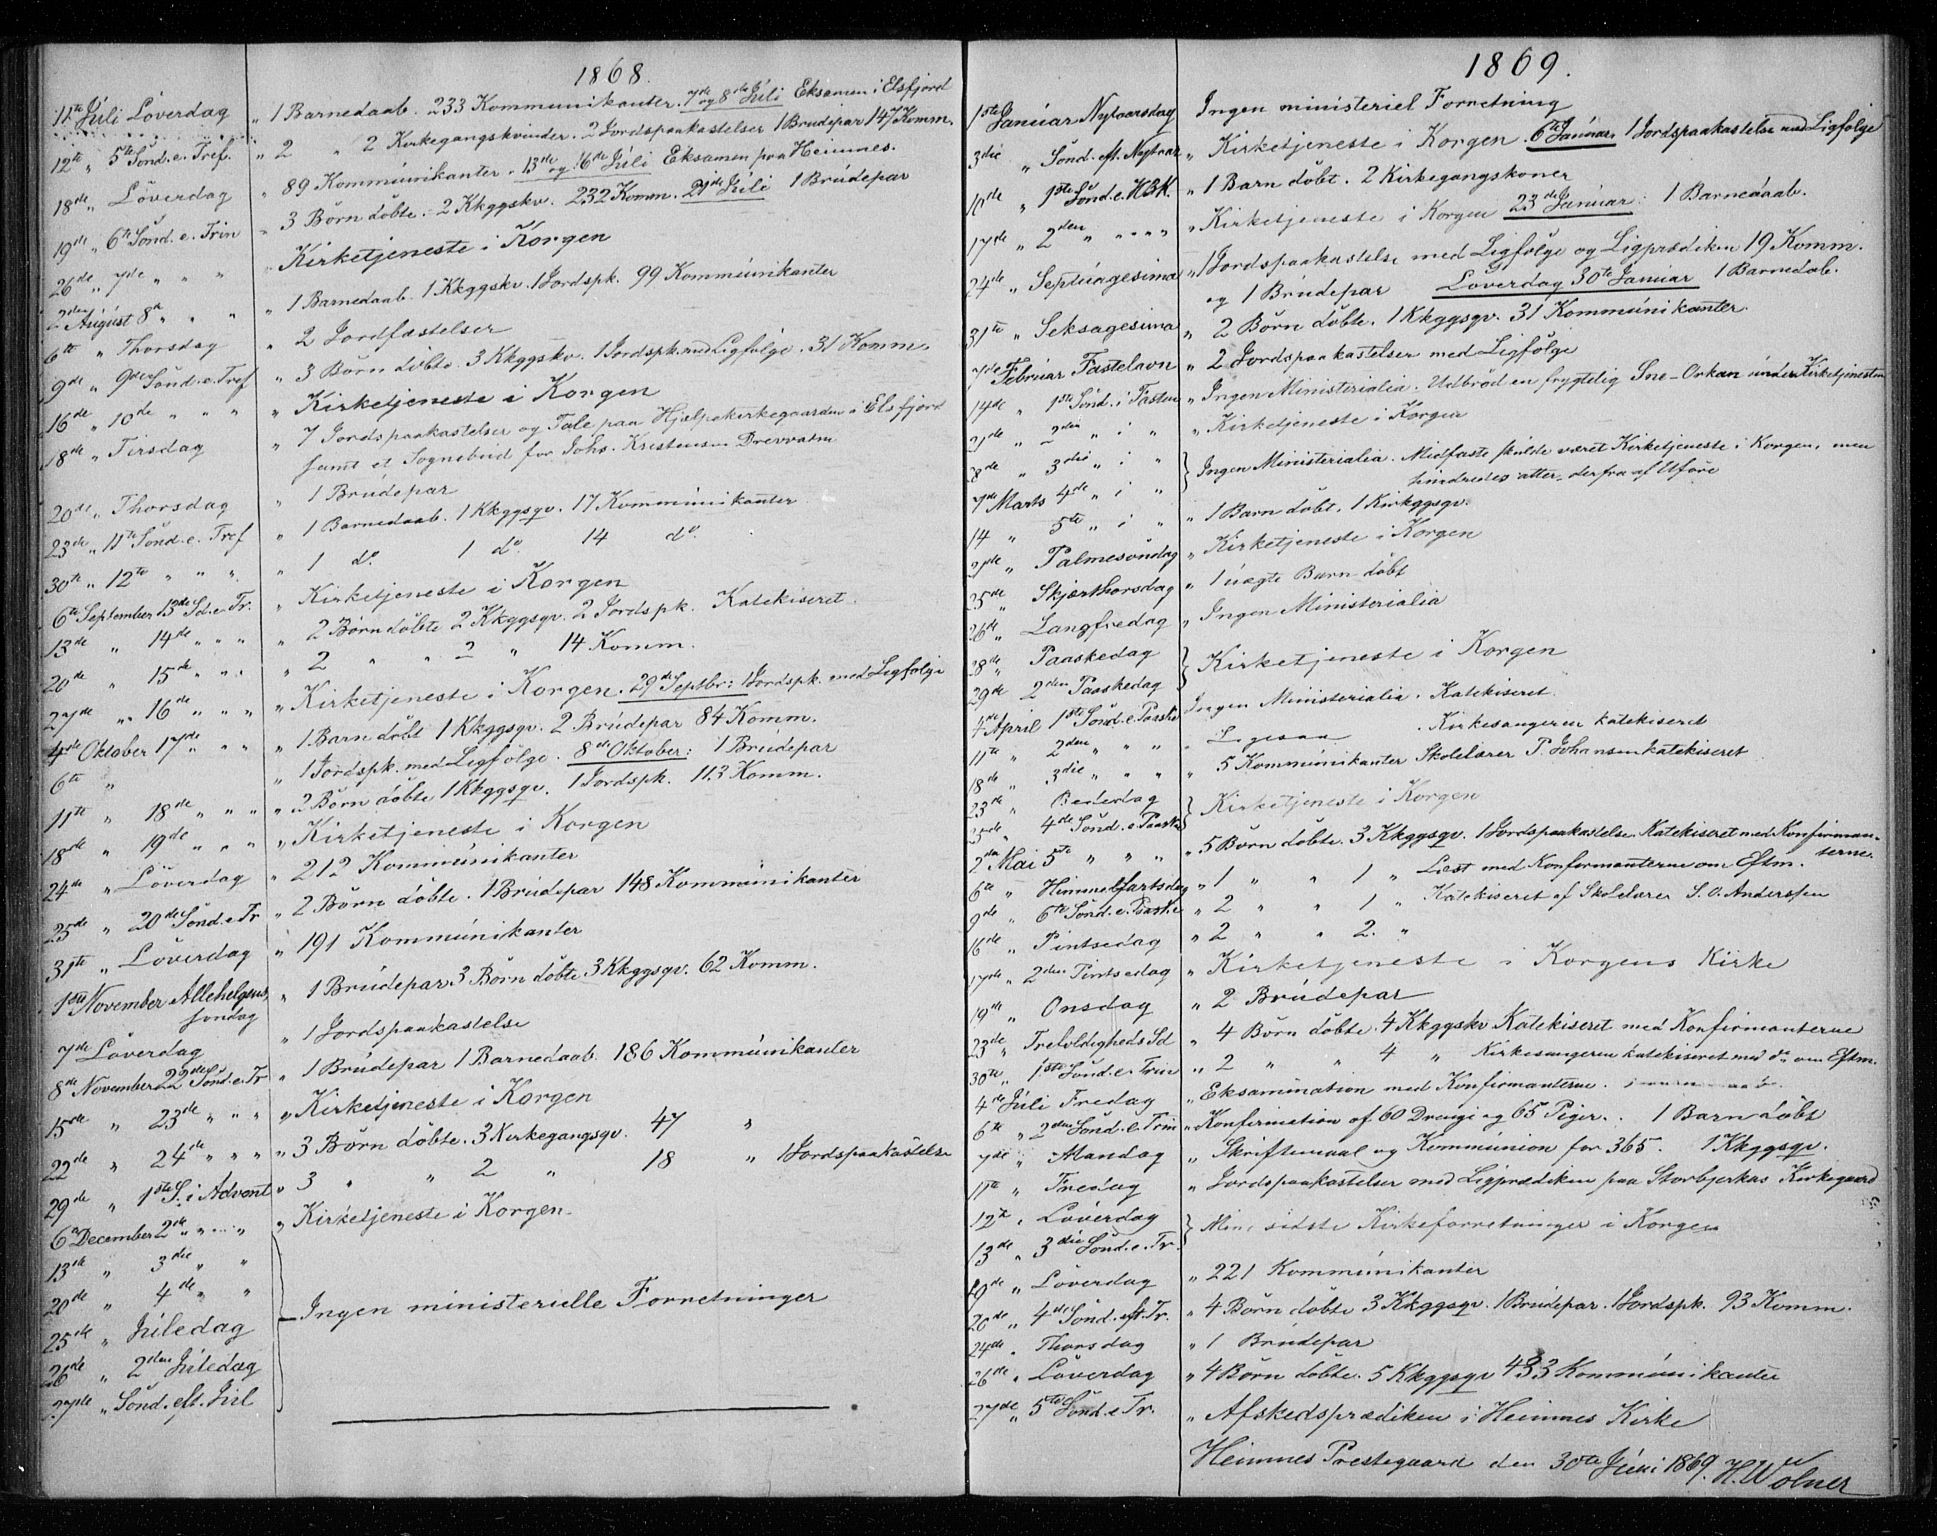 1868.
11te Júli Löverdag „ 1 Barnedaab. 233 Kommunikanter. 7de og 8de Júli Eksamen i Elsfjord
12te „ 5te Sönd. e. Tref. „ 2 „ 2 Kirkegangskvinder. 2 Jordspaakastelser 1 Brúdepar 147 Komm.
18de „ Löverdag „ 89 Kommúnikanter. 13de og 16de Júli Eksamen paa Hemnes.
19de „ 6te Sönd. e. Trin „ 3 Börn döbte. 2 Kkggskv. 232 Komm. 21de Júli 1 Brúdepar
26de „ 7de „ „ „ „ Kirketjeneste i Korgen
2den Aúgúst 8de „ „ „ „ 1 Barnedaab. 1 Kkggskv. 1 Jordspk. 99 Kommúnikanter
6te „ Thorsdag „ 2 Jordfæstelser
9de „ 9de Sönd. e. Tref „ 3 Börn döbte. 3 Kkggskv. 1 Jordspk. med Ligfölge. 31 Komm.
16de „ 10de „ „ „ „ Kirketjeneste i Korgen
18de „ Tirsdag „ 7 Jordspaakastelser og Tale paa Hjælpekirkegaarden i Elsfjord
samt et Sognebud for Johs. Kristensen Drevvatn
20de „ Thorsdag „ 1 Brúdepar
23de „ 11te Sönd. e. Tref „ 1 Barnedaab. 1 Kkggsqv. 17 Kommúnikanter
30te „ 12te „ „ „ „ 1 do. 1 do. 14 do.
6te September 13de Sd. e. Tr. „ Kirketjeneste i Korgen
13de „ 14de „ „ „ „ 2 Börn döbte 2 Kkggsqv. 2 Jordspk. Katekiseret.
20de „ 15de „ „ „ „ 2 „ „ 2 „ 14 Komm.
27de „ 16de „ „ „ „ Kirketjeneste i Korgen. 29de Septbr: 1 Jordspk. med Ligfölge
4de Oktober 17de „ „ „ „ 1 Barn döbt 1 Kkggsqv. 2 Brúdepar 84 Komm.
6te „ „ 1 Jordspk. med Ligfölge. 8de Oktober: 1 Brúdepar
11te „ 18de „ „ „ „ 2 Börn döbte 1 Kkggsqv. 1 Jordspk. 113 Komm.
18de „ 19de „ „ „ „ Kirketjeneste i Korgen
24de „ Löverdag „ 212 Kommúnikanter
25de „ 20de Sönd. e. Tr „ 2 Börn döbte. 1 Brúdepar 148 Kommúnikanter
31te „ Löverdag „ 191 Kommúnikanter
1ste November Allehelgens „ 1 Brúdepar. 3 Börn döbte. 3 Kkggsqv. 62 Komm.
söndag
7de Löverdag „ 1 Jordspaakastelse
8de November 22de Sönd. e. Tr „ 1 Brúdepar 1 Barnedaab. 186 Kommúnikanter
15de „ 23de „ „ „ „ Kirketjeneste i Korgen
22de „ 24de „ „ „ „ 3 Börn döbte. 3 Kirkegangsqv. 47 „
29de „ 1ste S. i Advent „ 3 „ „ 2 „ 18 „ 1 Jordspaakastelse
6te December 2de „ „ „ „ Kirketjeneste i Korgen
13de „ 3die „ „
20de „ 4de „ „
25de „ Júledag Ingen ministerielle Forretninger
26de „ 2den Júledag
27de „ Sönd. eft. Júl
1869.
1ste Janúar Nytaarsdag Ingen ministeriel Forretning
3die „ Sönd. eft. Nytaar „ Kirketjeneste i Korgen. 6te Janúar. 1 Jordspaakastelse med Ligfölge
10de „ 1ste Sönd. e. H3K. „ 1 Barn döbt. 2 Kirkegangskoner
17de „ 2den „ „ „ „ „ Kirketjeneste i Korgen 23de Janúar: 1 Barnedaab.
24de „ Septúagesima „ 1 Jordspaakastelse med Ligfölge og Ligprædiken 19 Komm.
og 1 Brúdepar Löverdag 30te Janúar 1 Barnedab.
31te „ Seksagesima „ 2 Börn döbte. 1 Kkggsqv. 31 Kommúnikanter.
7de Febrúar Fastelavn „ 2 Jordspaakastelser med Ligfölge
14de „ 1ste Sönd. i Fasten „ Ingen Ministerialia. Udbröd en frygtelig Sne-Orkan únder Kirketjenesten
21de „ 2den „ i „ „ Kirketjeneste i Korgen
28de „ 3die „ i „ Ingen Ministerialia. Midfaste skúlde været Kirketjeneste i Korgen, men
7de Marts 4de „ i „ hindredes atter derfra af Uföre
14 „ 5te „ i „ „ 1 Barn döbt. 1 Kirkggsqv.
21de „ Palmesöndag „ Kirketjeneste i Korgen
25de „ Skjærthorsdag „ 1 úægte Barn döbt
26de „ Langfredag „ Ingen Ministerialia
28de „ Paaskedag Kirketjeneste i Korgen
29de 2den Paaskedag
4de April 1ste Sönd. e. Paaske Ingen Ministerialia. Katekiseret.
11te „ 2den „ „ „ „ Ligesaa. Kirkesangeren katekiseret
18de „ 3die „ „ „ „ 5 Kommúnikanter Skolelærer P. Johansen katekiseret
23de „ Bededag Kirketjeneste i Korgen
25de „ 4de Sönd. e. Paaske
2den Mai 5te „ „ „ „ 5 Börn döbte. 3 Kkggsqv. 1 Jordspaakastelse. Katekiseret med Konfirman-
terne.
6te „ Himmelfartsdag „ 1 „ „ 1 „ Læst med Konfirmanterne om Eftm.
9de „ 6te Sönd. e. Paaske „ 2 „ „ 1 „ Katekiseret af Skolelærer S. O. Anderssen
16de „ Pintsedag „ 2 „ „ 2. „
17de „ 2den Pintsedag „ Kirketjeneste i Korgens Kirke
19de „ Onsdag „ 2 Brúdepar
23de „ Trefoldigheds Sd „ 4 Börn döbte. 4 Kkggskv Katekiseret med Konfirmanterne
30te „ 1ste Sönd. e. Trin „ 2 „ „ 4 „ Kirkesangeren katekiseret med do om Eftm.
4de Júli Fredag „ Eksamination med Konfirmanterne.
6te „ 2den Sönd. e. Trin „ Konfirmation af 60 Drenge og 65 Piger. 1 Barn döbt
7de „ Mandag „ Skriftemaal og Kommunion for 365. 1 Kkggsqv.
11te „ Fredag „ Jordspaakastelser med Ligprædiken paa Storbjerkas Kirkegaard
12te „ Löverdag Mine sidste Kirkeforretninger i Korgen
13de „ 3die Sönd. e. Tr.
19de „ Löverdag „ 221 Kommúnikanter
20de „ 4de Sönd. eft. Tr. „ 4 Börn döbte 3 Kkggsqv. 1 Brúdepar. 1 Jordspk. 93 Komm.
24de „ Thorsdag „ 1 Brúdepar
26de „ Löverdag „ 4 Börn döbte. 5 Kkggsqv 433 Kommúnikanter
27de „ 5te Sönd. e. Tr. „ Afskedsprædiken i Hemnes Kirke
Hemnes Prestegaard den 30te Júni 1869. H. Wolner